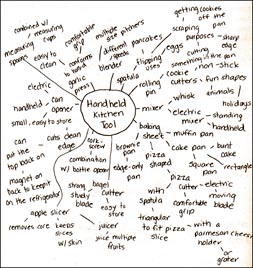 combined w/
measuring
cup
measuring
spoon
easy to
clean
comfortable
grip
conforms
to
hands
garlic
press
multiple
size pitchers
different
speeds
blender
pancakes
flipping
eggs
uses
spatula
getting cookies
off the
pan
scraping
purposes
sharp
edge
non stick
rolling
cookie
cutters
fun shapes
animals
holidays
whisk
mixer
electric
mixer
standing
handheld
Handheld
Kitchen
Tool
electric
handheld
can
opener
small, easy to store
can
put the
top back on
cuts clean
edge
magnet on
back to keep it
on the refrigerator
cork-
screw
combination
w/ bottle opener
baking
sheet
muffin pan
cake pan
bunt
cake
square
pan
rectangle
brownie
pan
edge-only
pizza
shaped pan
pizza
cutter
electric
moving
blade
with
spatula
comfortable
grip
triangular
to fit pizza
slice
with a
parmesan cheese
holder
or
grater
strong
blade
bagel
cutter
easy to
store
apple slicer
removes core
keeps
slices
w/ skin
juicer
juice multiple
fruits